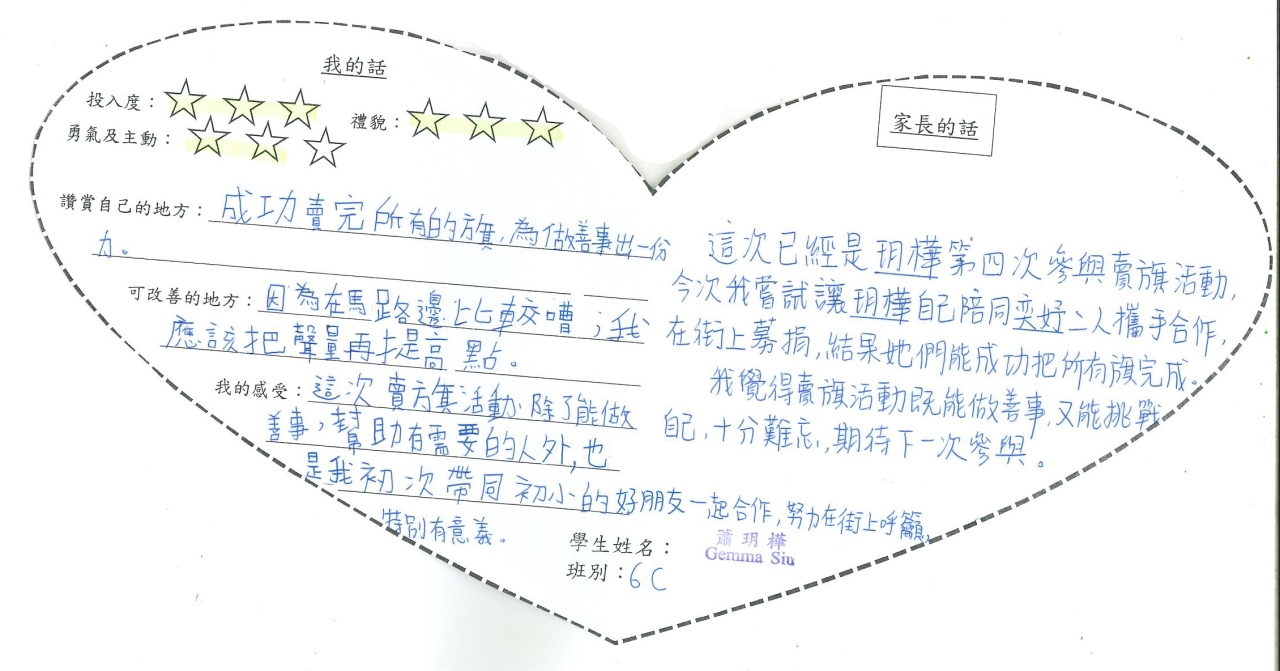 我的話
投入度：☆☆☆
禮貌：☆☆☆
勇氣及主動：☆☆☆
讚賞自己的地方：成功賣完所有的旗，為做善事出一份
力。
可改善的地方：因為在馬路邊比較嘈；我
應該把聲量再提高點。
我的感受：這次賣旗活動除了能做
善事，幫助有需要的人外，也
是我初次帶同初小的好朋友一起合作，努力在街上呼籲，
特別有意義。
學生姓名：蕭玥樺
Gemma Siu
班別：6C
家長的話
這次已經是玥樺第四次參與賣旗活動，
今次我嘗試讓玥樺自己陪同奕妤二人攜手合作，
在街上募捐，結果她們能成功把所有旗完成。
我覺得賣旗活動既能做善事，又能挑戰
自己，十分難忘，期待下一次參與。